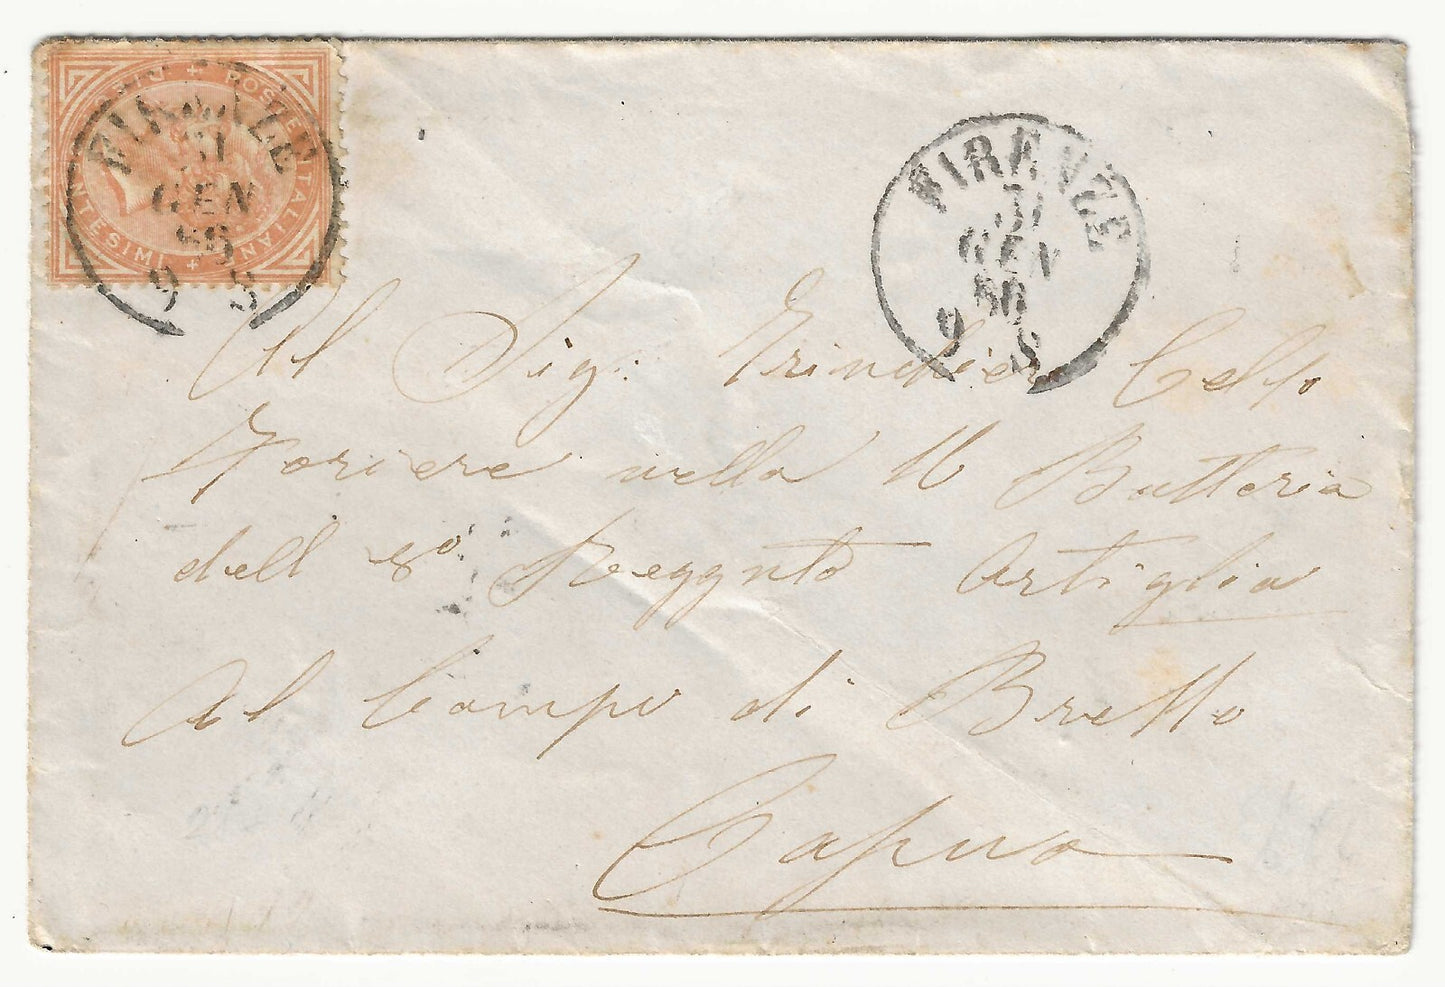 POSTE ITALIANE + DIECI CENTESIMI +
FIRENZE
31
GEN
66
9 S
FIRENZE
31
GEN
66
9 S
Al Sig: Celso
Foriere nella 11 Batteria
dell 8° Reggnto Artiglia
Al Campo di
Capua